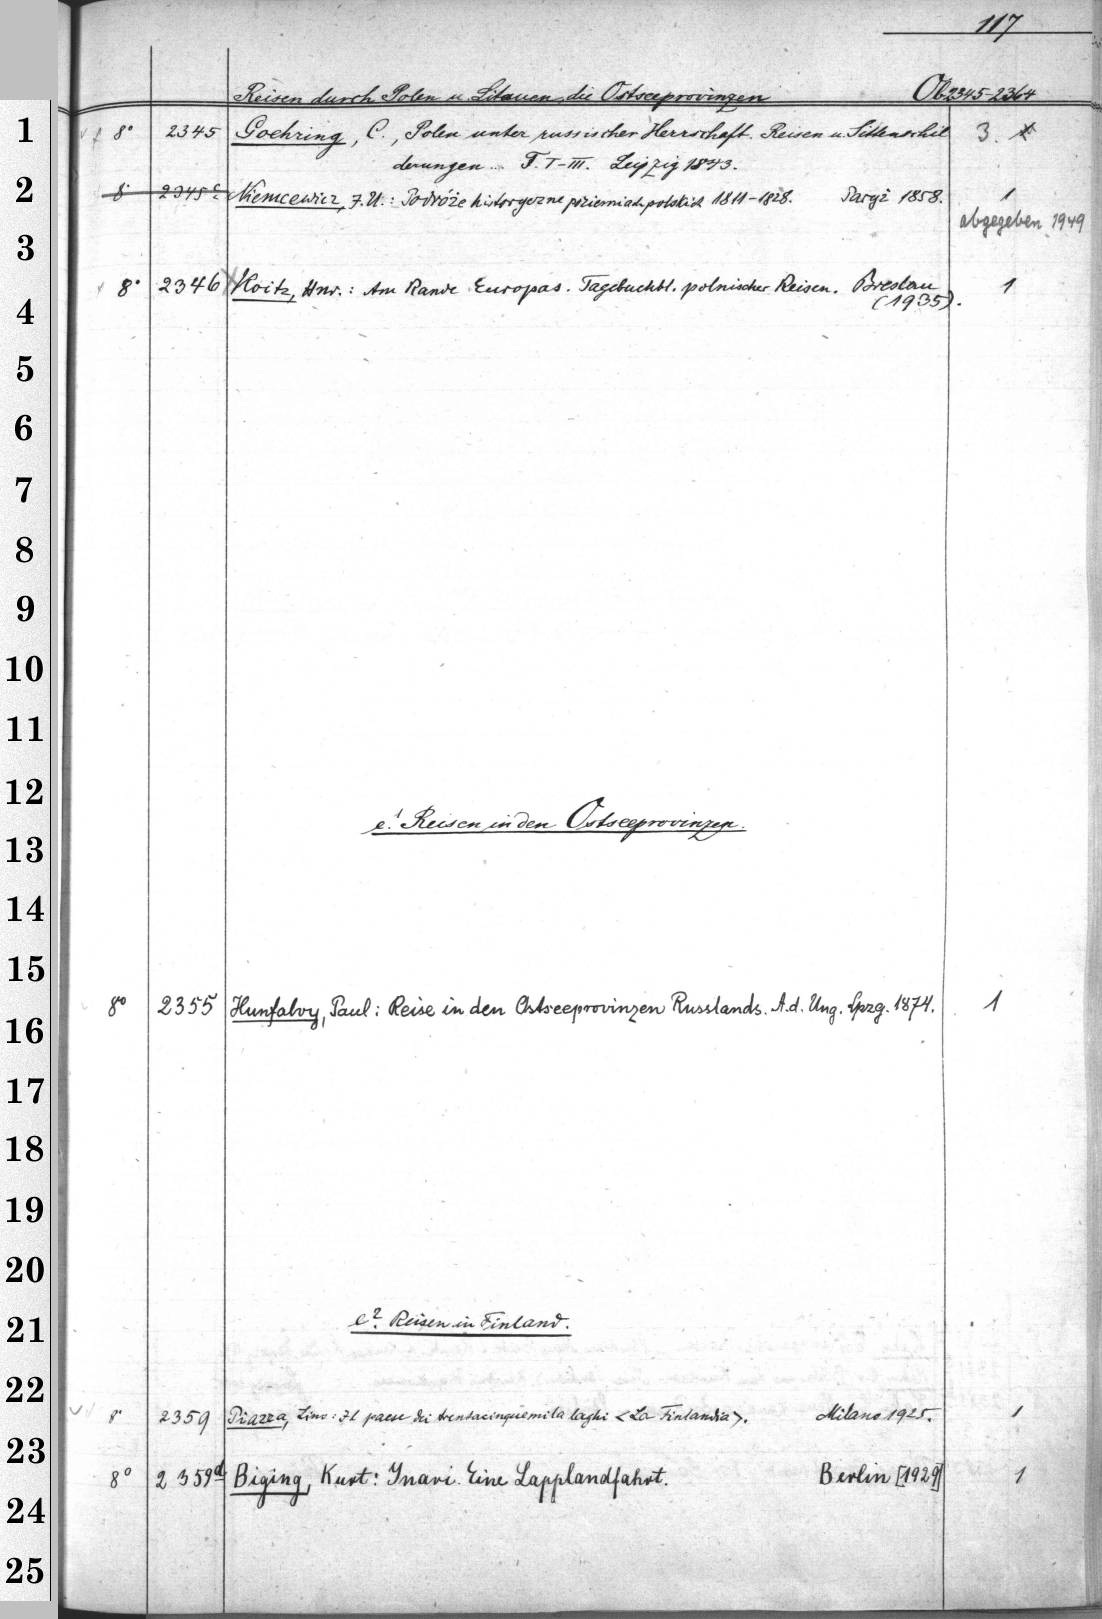 117
Reisen durch Polen u Litauen, die Ostseeprovinzen Ob 2345-2364
1 8° 2345 Goehring, C., Polen unter russischer Herrschaft. Reisen u. Sittenschil 3.
derungen... T. I-III. Leipzig 1843.
2 8° 2345c Niemcewicz, J. U.: Podróże historyczne po ziemiach polskich 1811-1828. Paryż 1858. 1
abgegeben 1949
3
8° 2346 Koitz, Hnr.: Am Rande Europas. Tagebuchbl. polnischer Reisen. Breslau 1
4 (1935).
5
6
7
8
9
10
11
12
e.1 Reisen in den Ostseeprovinzen.
13
14
15
8° 2355 Hunfalvy, Paul: Reise in den Ostseeprovinzen Russlands. A. d. Ung. Lpzg. 1874. 1
16
17
18
19
20
21 e2. Reisen in Finland.
22
8° 2359 Piazza, Lino: Il paese dei trentacinquemila laghi <La Finlandia>. Milano 1925. 1
23
8° 2359d Biging, Kurt: Ynari. Eine Lapplandfahrt. Berlin [1929] 1
24
25